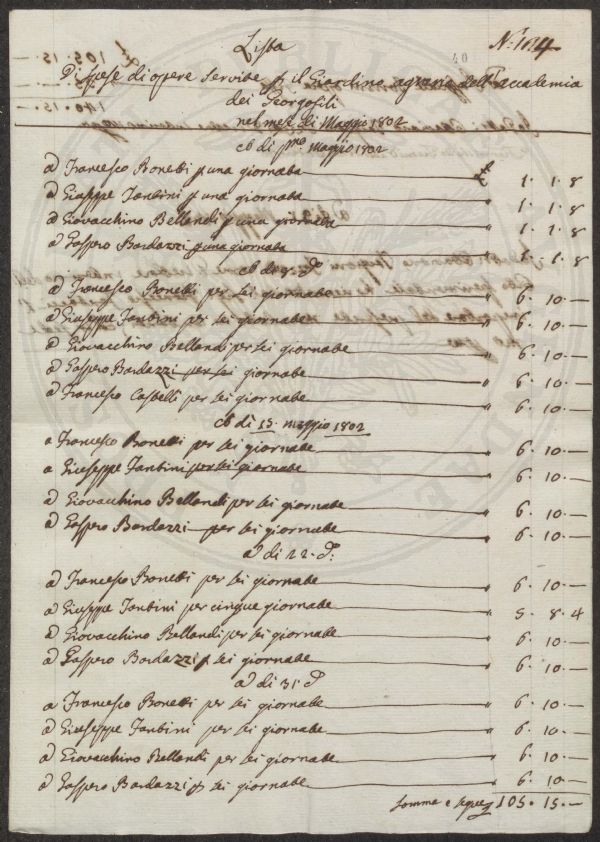 Lista
N.º 104
40
Di spese di opere servite p il Giardino agrario dell'accademia
dei Georgofili
nel mese di Maggio 1802
ad di pmo maggio 1802
a Francesco Bonetti p una giornata £ 1. 1. 8
a Giuseppe Fantini p una giornata 1. 1. 8
a Giovacchino Bellandi p una giornata 1. 1. 8
a Gaspero Bardazzi p una giornata 1. 1. 8
ad di 8. do
a Francesco Bonetti per sei giornate " 6. 10. —
a Giuseppe Fantini per sei giornate " 6. 10. —
a Giovacchino Bellandi per sei giornate " 6. 10. —
a Gaspero Bardazzi per sei giornate " 6. 10. —
a Francesco Castelli per sei giornate " 6. 10. —
ad di 15. maggio 1802
a Francesco Bonetti per sei giornate " 6. 10. —
a Giuseppe Fantini per sei giornate " 6. 10. —
a Giovacchino Bellandi per sei giornate " 6. 10. —
a Gaspero Bardazzi per sei giornate " 6. 10. —
ad di 22. do:
a Francesco Bonetti per sei giornate " 6. 10. —
a Giuseppe Fantini per cinque giornate " 5. 8. 4
a Giovacchino Bellandi per sei giornate " 6. 10. —
a Gaspero Bardazzi p sei giornate " 6. 10. —
ad di 31. do
a Francesco Bonetti per sei giornate " 6. 10. —
a Giuseppe Fantini per sei giornate " 6. 10. —
a Giovacchino Bellandi per sei giornate " 6. 10. —
a Gaspero Bardazzi p sei giornate " 6. 10. —
somma e segue 105. 15. —